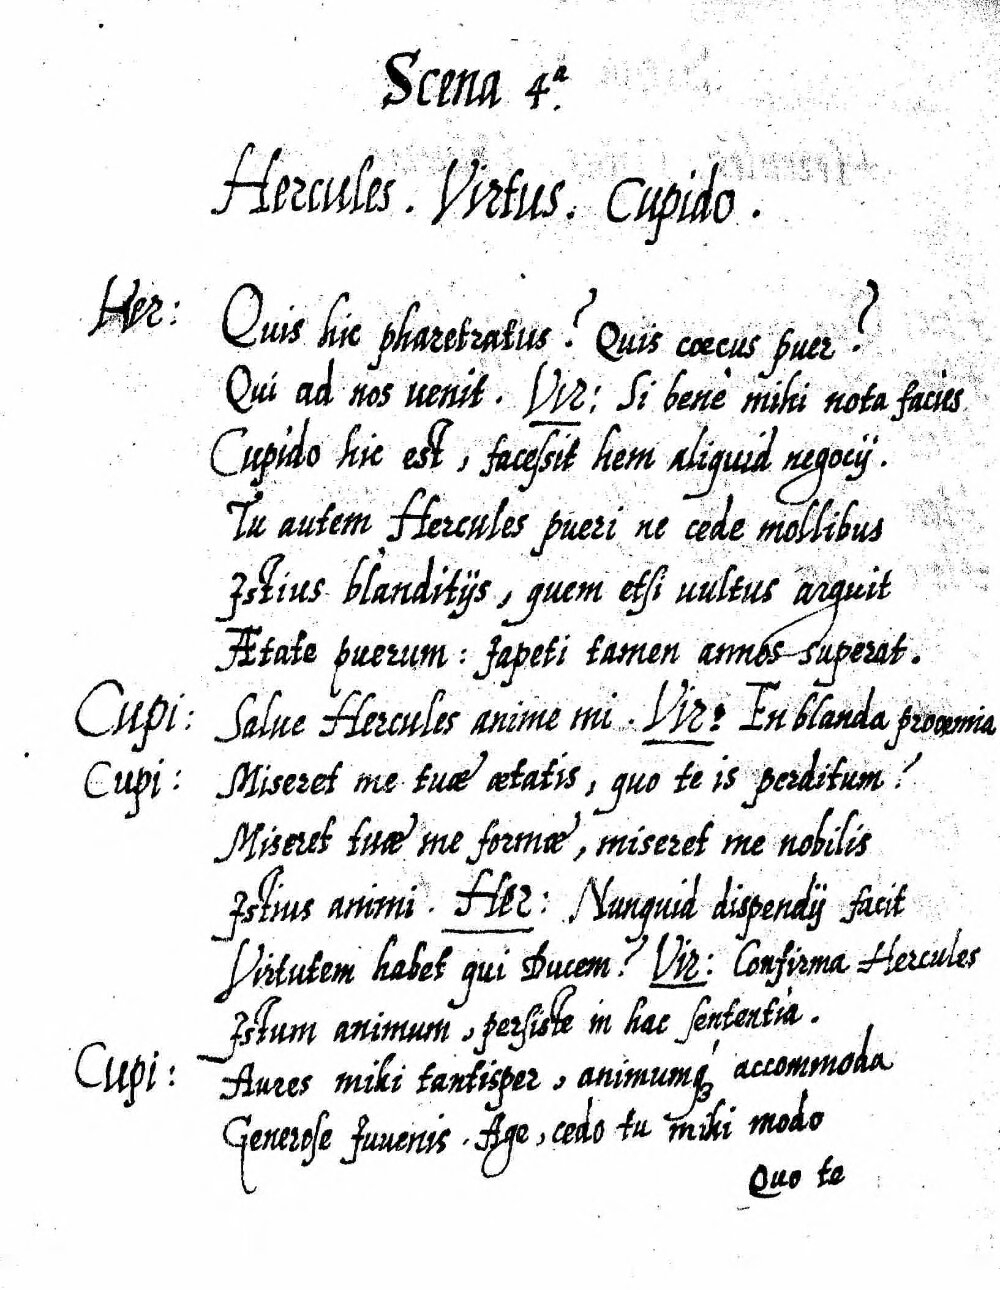 Scena 4ª.
Hercules. Virtus. Cupido.
Her: Quis hic pharetratus? Quis cœcus puer?
Qui ad nos uenit. Vir: Si benè mihi nota facies
Cupido hic est, facessit hem aliquid negocij.
Tu autem Hercules pueri ne cede mollibus
Istius blanditijs, quem etsi uultus arguit
Ætate puerum: Japeti tamen annos superat.
Cupi: Salue Hercules anime mi. Vir: En blanda proœmia
Cupi: Miseret me tuæ ætatis, quo te is perditum?
Miseret tuæ me formæ, miseret me nobilis
Istius animi. Her: Nunquid dispendij facit
Virtutem habet qui Ducem? Vir: Confirma Hercules
Istum animum, persiste in hac sententia.
Cupi: Aures mihi tantisper, animumq́ꝫ accommoda
Generose Juuenis. Age, cedo tu mihi modo
Quo te